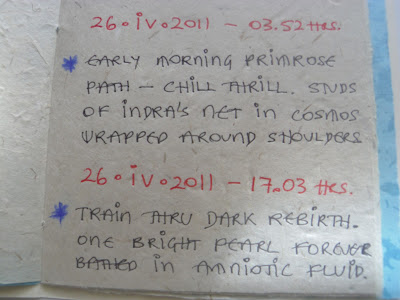 26.iv.2011 – 03.52 Hrs.
* EARLY MORNING PRIMROSE
PATH – CHILL THRILL. STUDS
OF INDRA'S NET IN COSMOS
WRAPPED AROUND SHOULDERS
26.iv.2011 – 17.03 Hrs.
* TRAIN THRU DARK REBIRTH.
ONE BRIGHT PEARL FOREVER
BATHED IN AMNIOTIC FLUID.